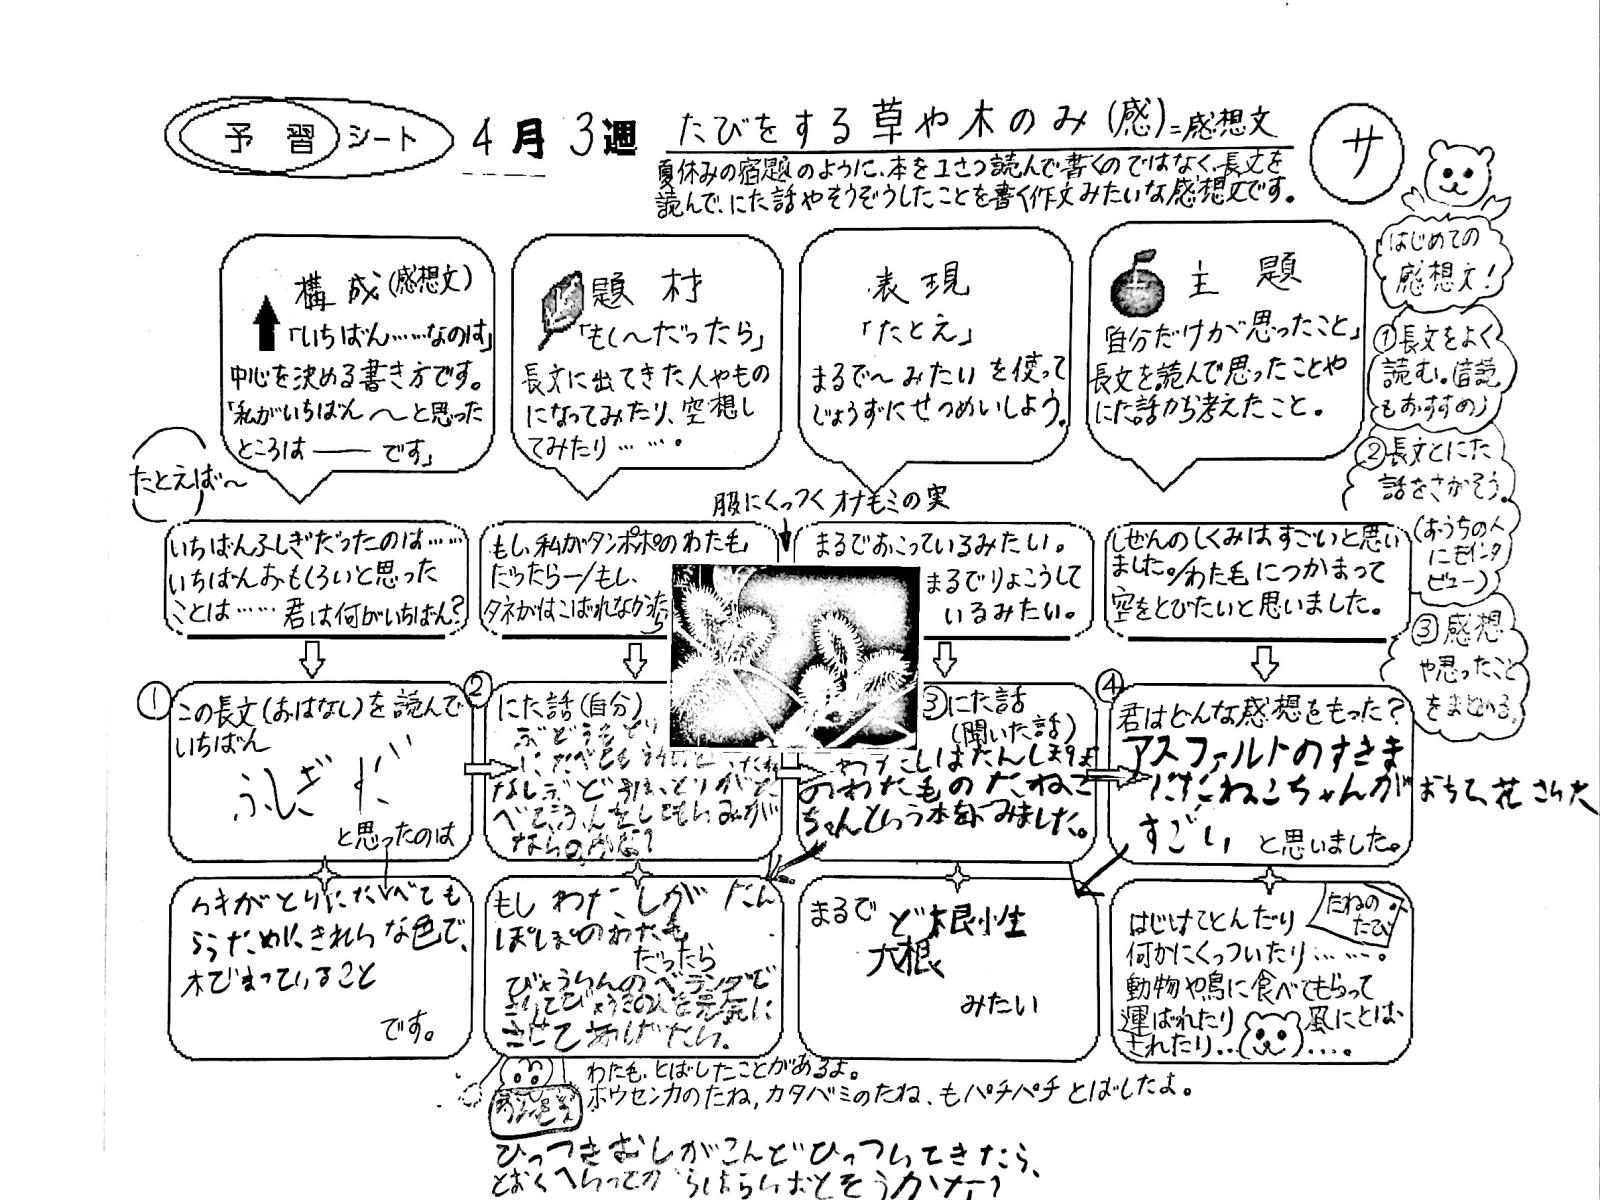 予習シート 4月3週 たびをする草や木のみ(感)=感想文 サ
夏休みの宿題のように、本を1さつ読んで書くのではなく、長文を
読んで、にた話やそうぞうしたことを書く作文みたいな感想文です。
構成(感想文)
「いちばん……なのは」
中心を決める書き方です。
「私がいちばん〜と思った
ところは―― です」
題材
「もし〜だったら」
長文に出てきた人やもの
になってみたり、空想し
てみたり……。
表現
「たとえ」
まるで〜みたい を使って
じょうずにせつめいしよう。
主題
「自分だけが思ったこと」
長文を読んで思ったことや
にた話から考えたこと。
はじめての
感想文!
①長文をよく
読む。(音読
もおすすめ)
②長文とにた
話をさがそう。
(おうちの人
にもインタ
ビュー)
③感想
や思ったこと
をまとめる。
たとえば〜
服にくっつくオナモミの実
いちばんふしぎだったのは……
いちばんおもしろいと思った
ことは…… 君は何がいちばん?
もし、私がタンポポのわた毛
だったら―/もし、
タネがはこばれなかったら
まるでおこっているみたい。
まるでりょこうして
いるみたい。
しぜんのしくみはすごいと思い
ました。/わた毛につかまって
空をとびたいと思いました。
①
この長文(おはなし)を読んで
いちばん
ふしぎだ
と思ったのは
②
にた話(自分)
ぶどうも とり
に たべても
なしぶどうは、とりがた
べて、ふんをしても、いみが
ならのかな?
③にた話
(聞いた話)
わたしはたんぽぽ
のわたものたねこ
ちゃんという本をよみました。
④
君はどんな感想をもった?
アスファルトのすきま
にたねこちゃんがおちて、花さいた
すごい と思いました。
カキがとりにたべても
らうために、きれいな色で、
木でまっていること
です。
もし わたしが たん
ぽぽのわたも
だったら
びょういんのベランダで
さいてびょうきの人を元気に
させてあげたい。
まるで ど根性
大根
みたい
たねの
たび
はじけてとんだり
何かにくっついたり……。
動物や鳥に食べてもらって
運ばれたり 風にとば
されたり……。
わた毛、とばしたことがあるよ。
ホウセンカのたね、カタバミのたね、もパチパチとばしたよ。
ひっつきむしがこんどひっついてきたら、
とおくへいってか らはらいおとそうかな?